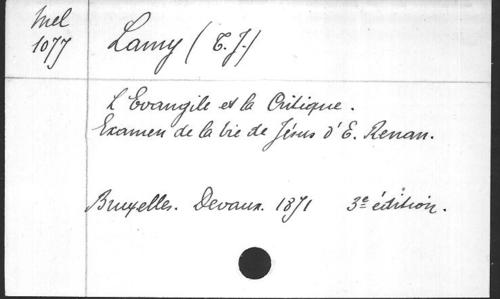 Mel
1077
Lamy (T. J.)
L'Evangile et la Critique.
Examen de la vie de Jésus d'E. Renan.
Bruxelles. Devaux. 1871 3e édition.